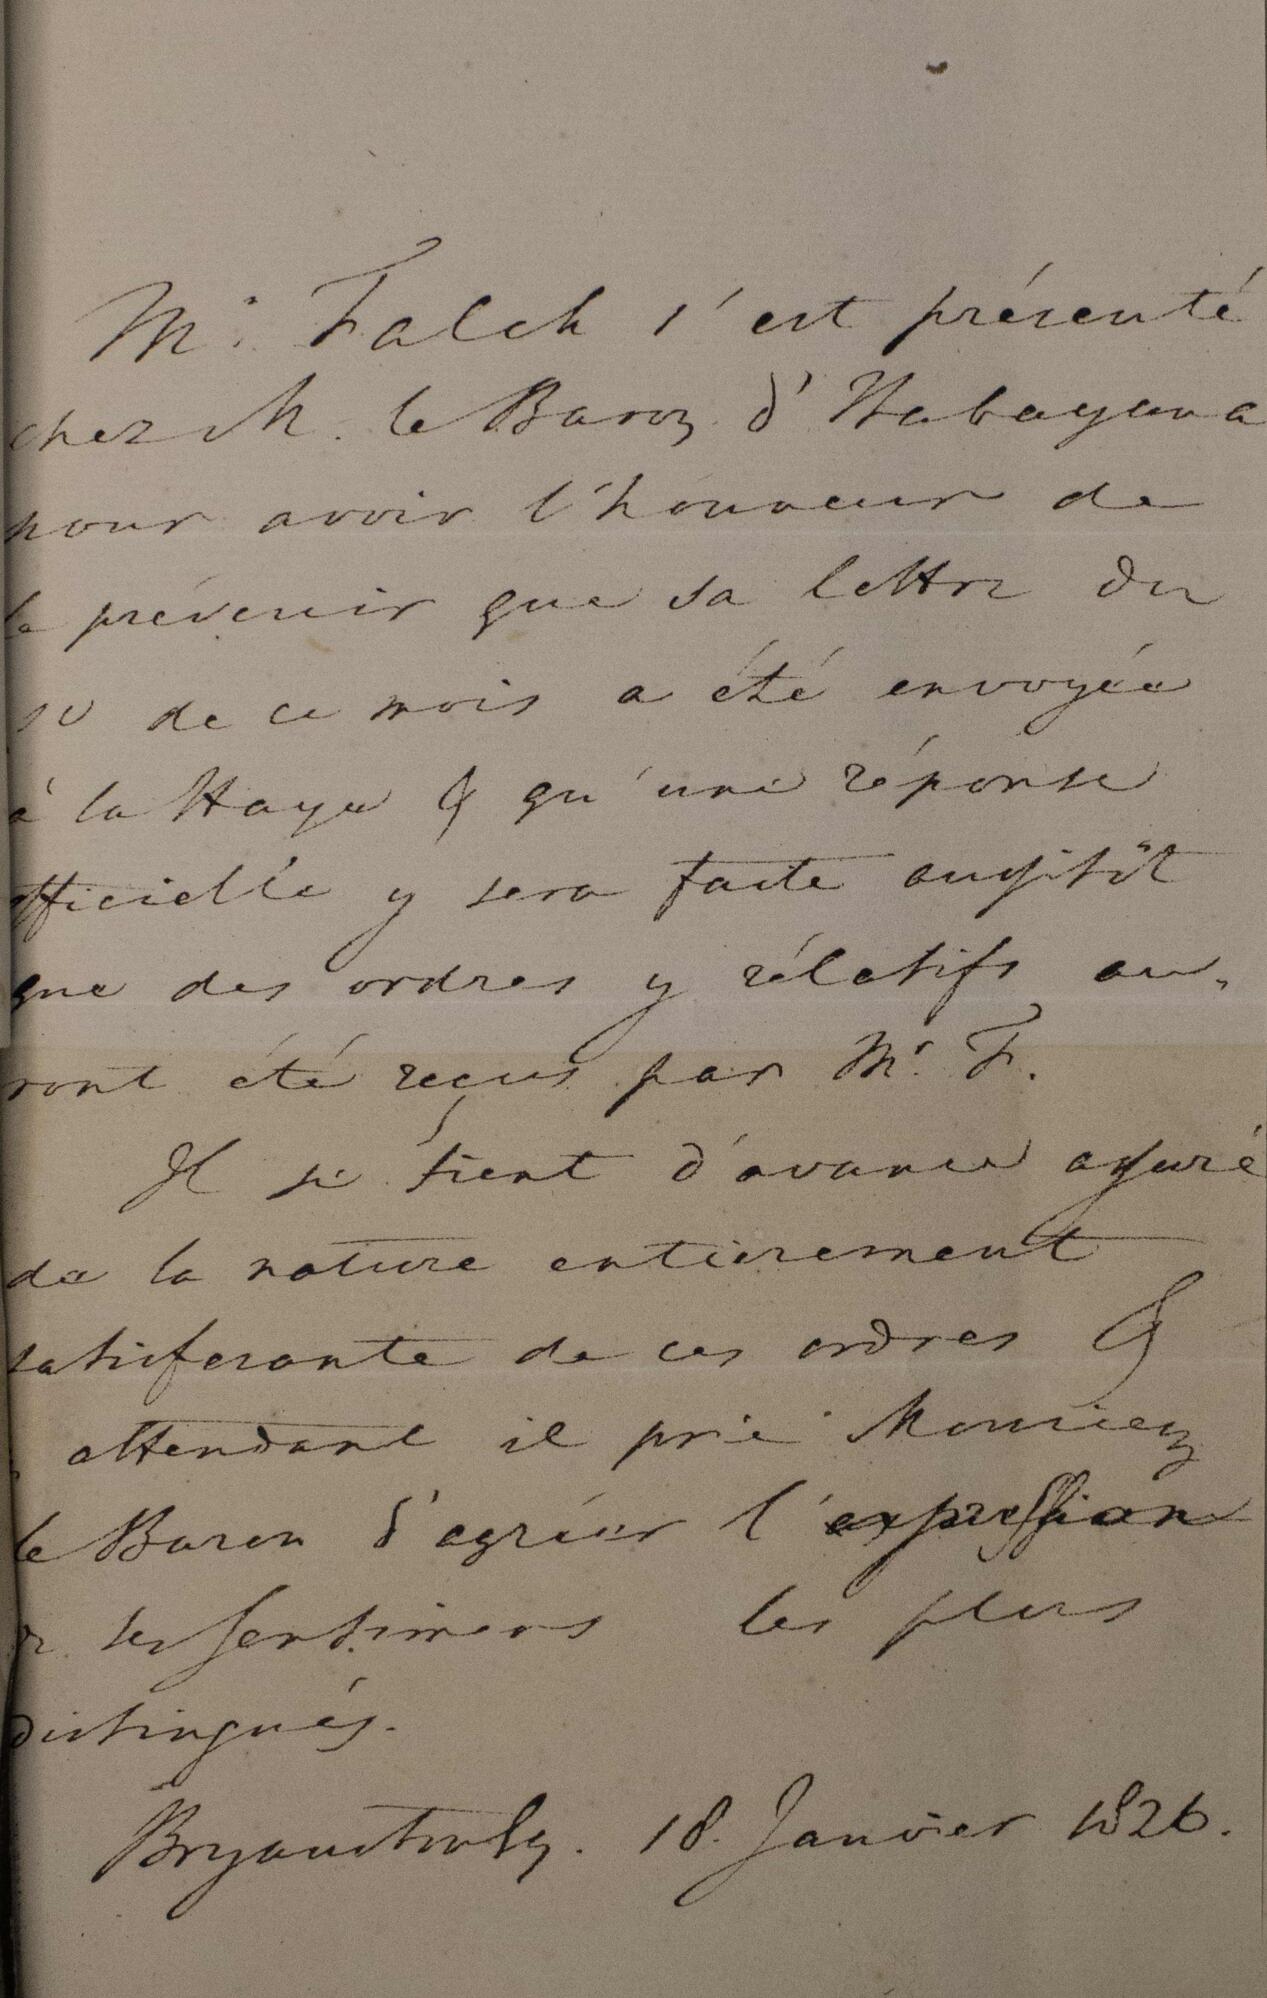 Mr. Falck s'est présenté
chez M. le Baron d'Itabayana
pour avoir l'honneur de
le prévenir que sa lettre du
de ce mois a été envoyée
à la Haye & qu'une réponse
officielle y sera faite aussitôt
que des ordres y rélatifs au-
ront été reçus par Mr. F.
Il se tient d'avance assuré
de la nature entièrement
satisfesante de ces ordres &
attendant il prie Monsieur
le Baron d'agréer l'expression
de ses sentimens les plus
distingués.
Bryanstonsq. 18. Janvier 1826.